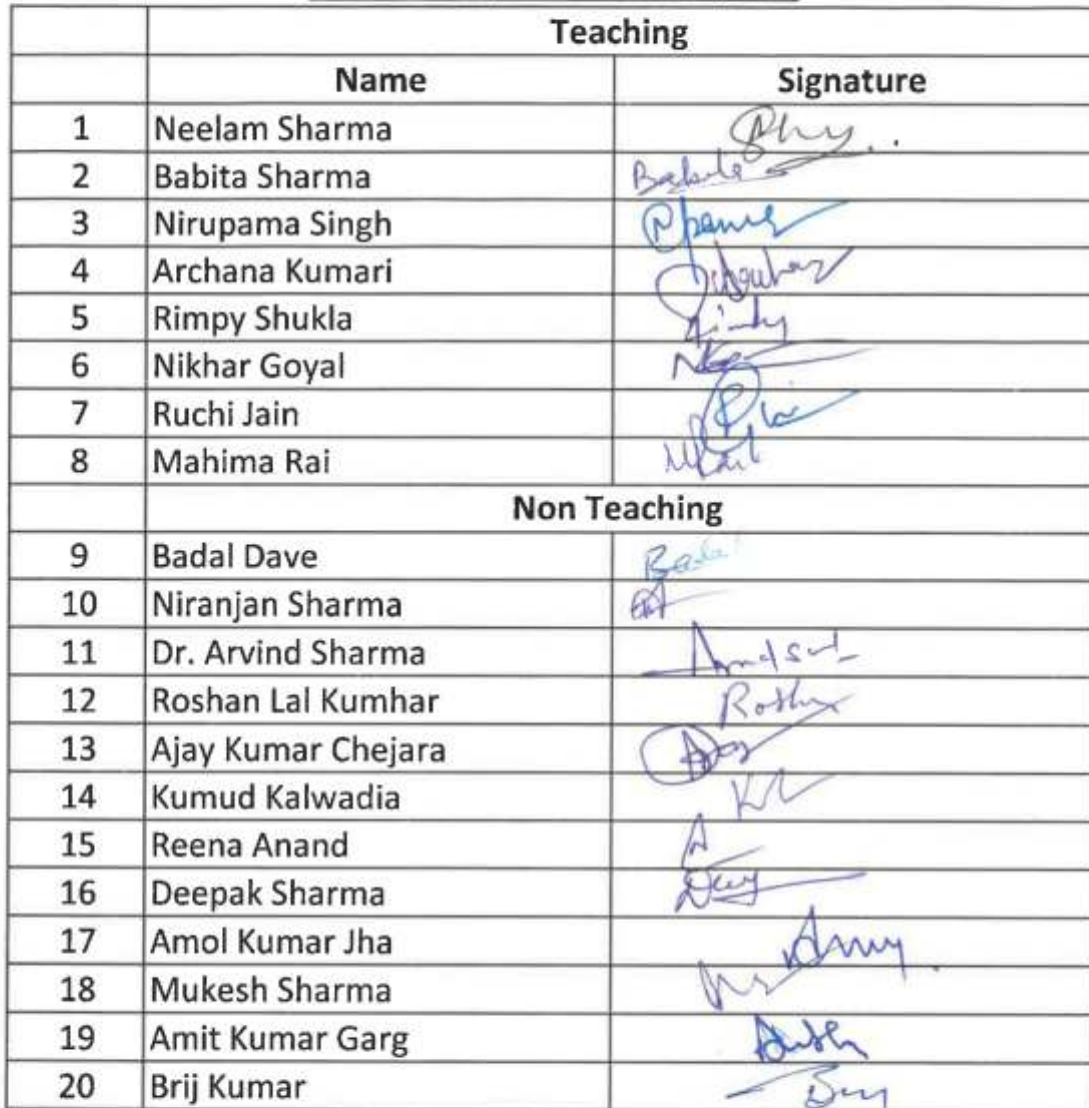 Teaching
Name Signature
1 Neelam Sharma
2 Babita Sharma Babita
3 Nirupama Singh
4 Archana Kumari
5 Rimpy Shukla
6 Nikhar Goyal
7 Ruchi Jain
8 Mahima Rai
Non Teaching
9 Badal Dave Badal
10 Niranjan Sharma
11 Dr. Arvind Sharma
12 Roshan Lal Kumhar
13 Ajay Kumar Chejara
14 Kumud Kalwadia
15 Reena Anand
16 Deepak Sharma
17 Amol Kumar Jha
18 Mukesh Sharma
19 Amit Kumar Garg
20 Brij Kumar